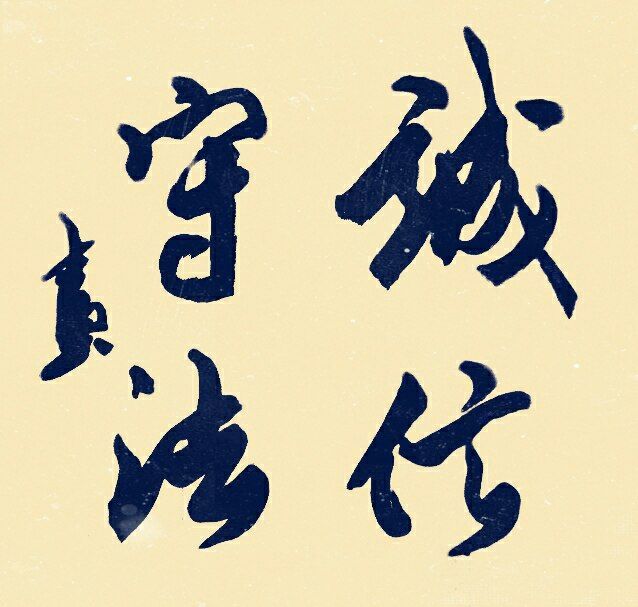 诚信
守法